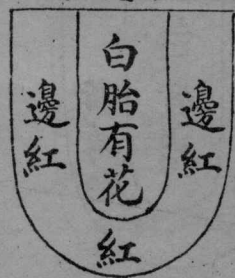 邊紅
白胎有花
邊紅
紅